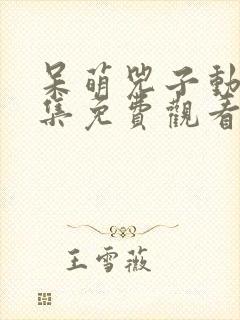 呆萌兇子動
集免費觀看
王雪薇